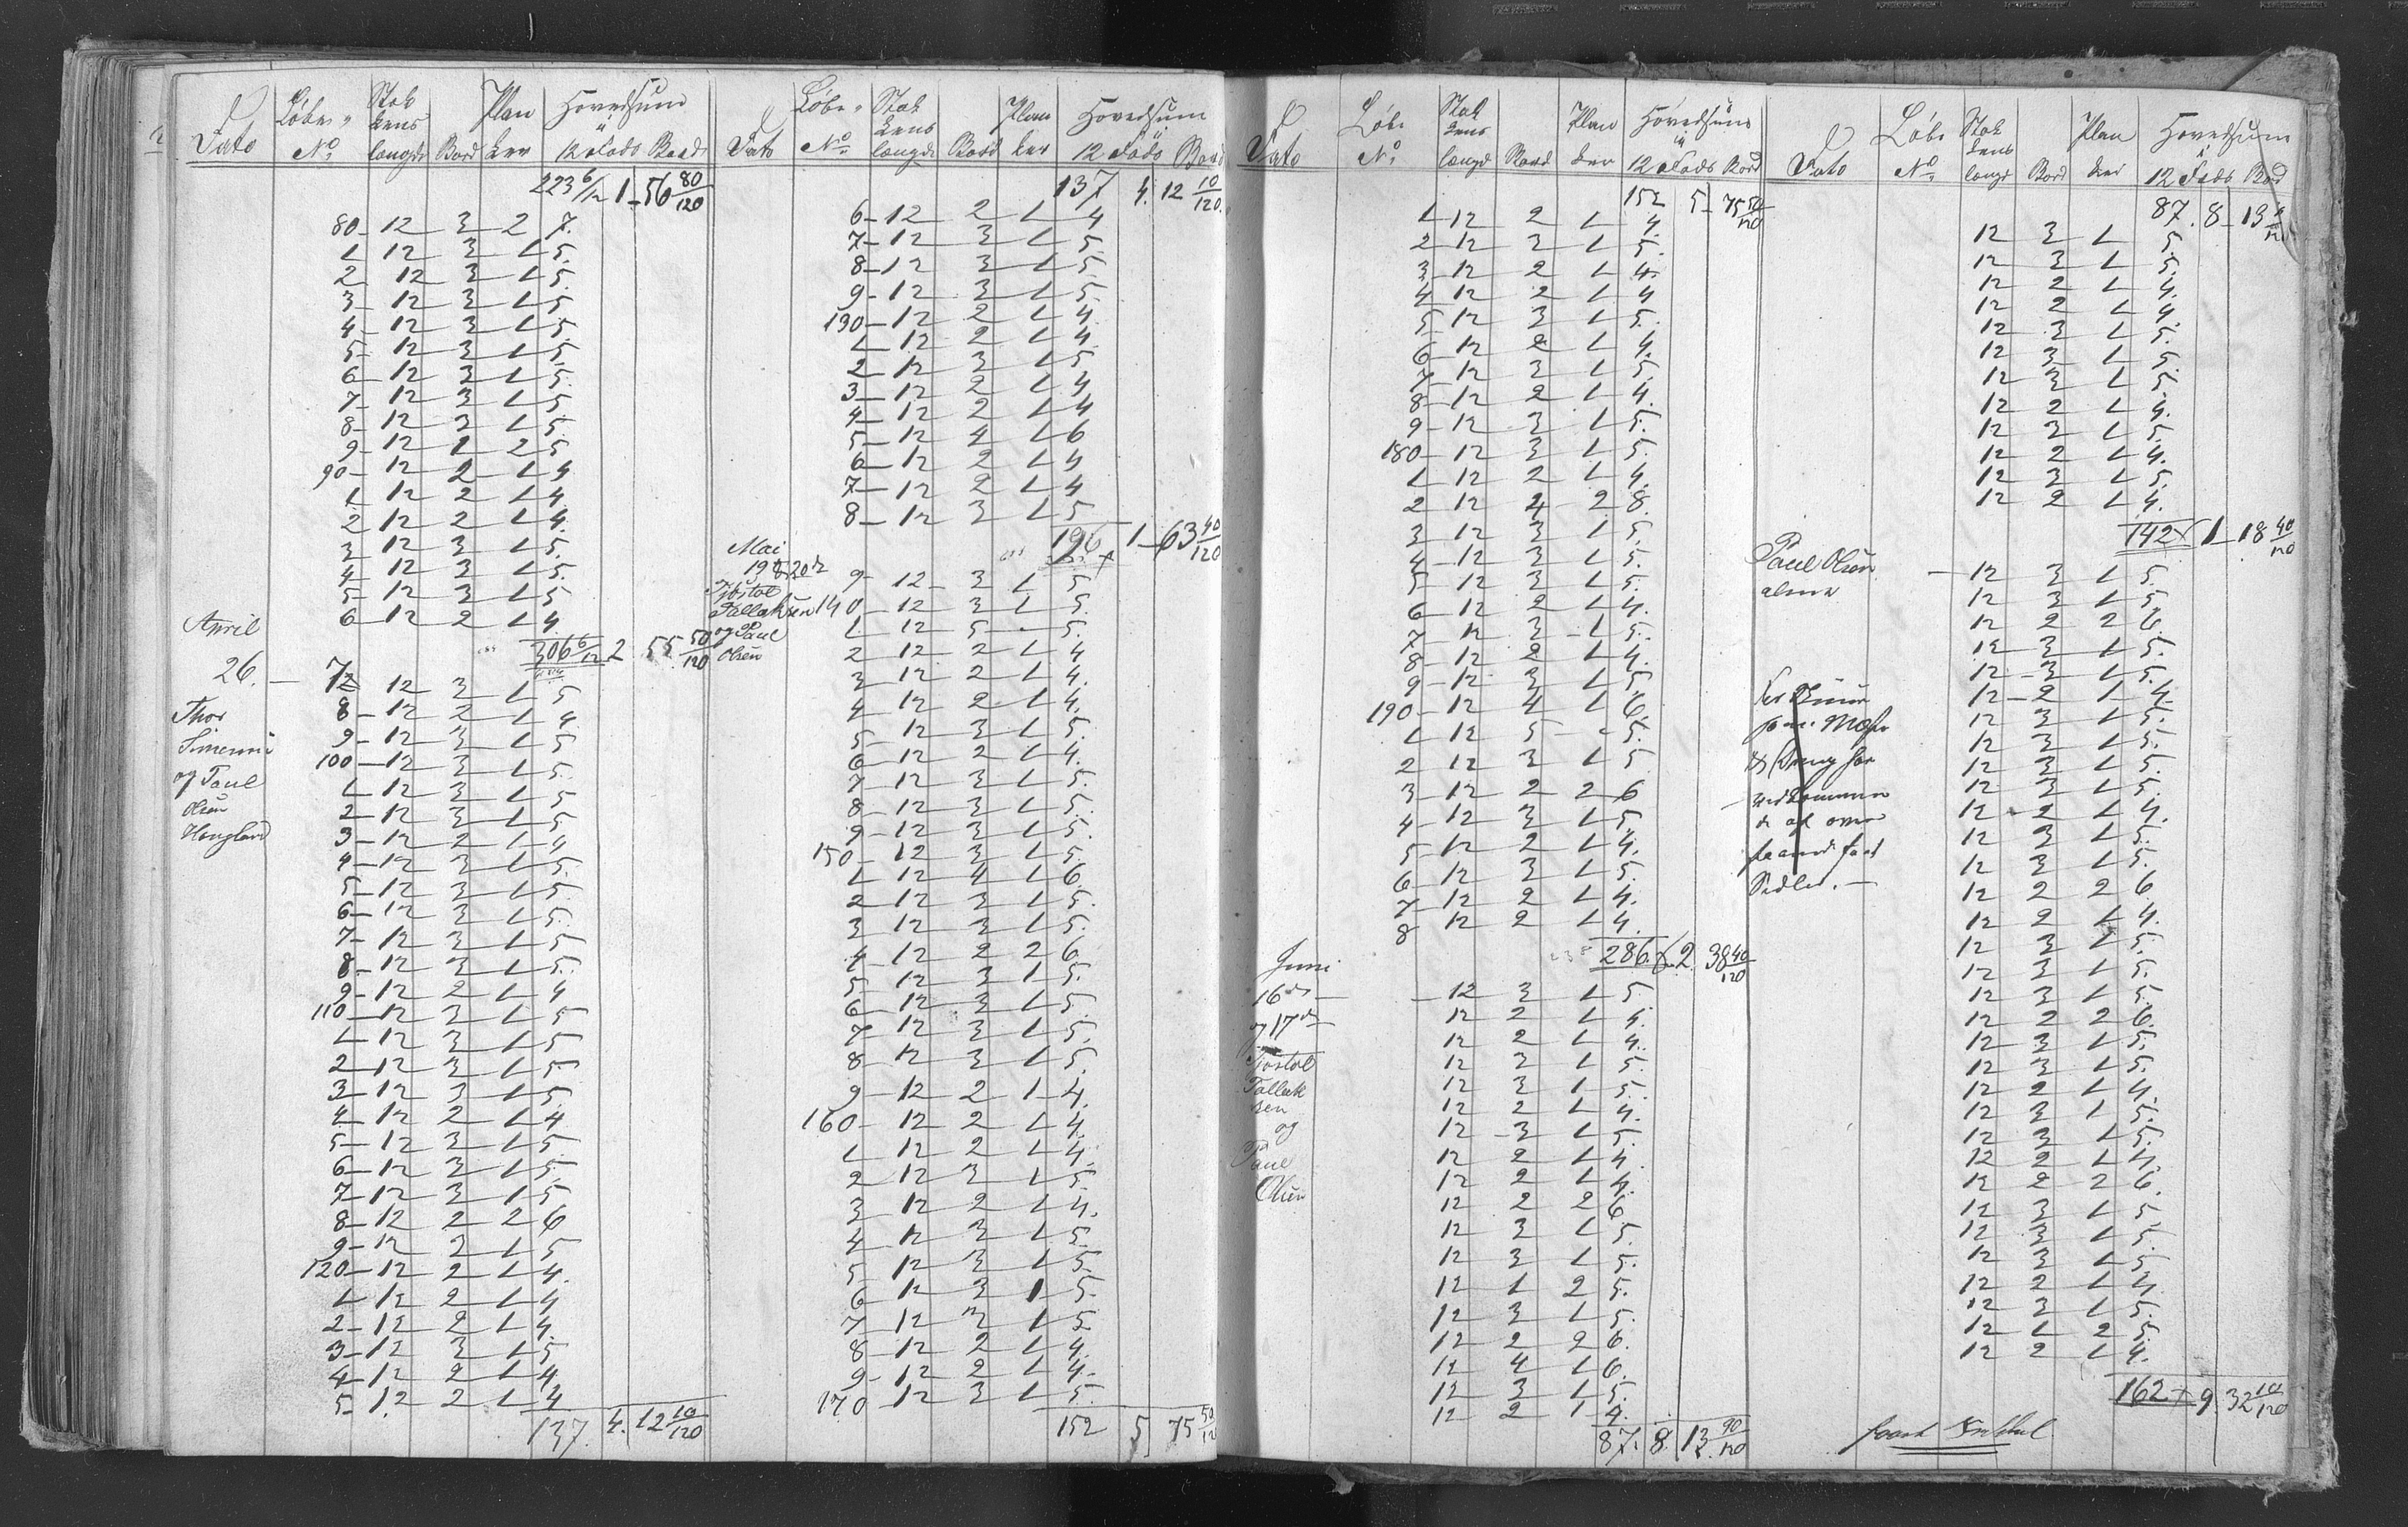 Dato Løbe No Stok kens længde Bord Plan ker Hovedsum à 12 Fods Bord
223 6/12 1 56 80/120
80 12 3 2 7.
1 12 3 1 5.
2 12 3 1 5.
3 12 3 1 5
4 12 3 1 5.
5 12 3 1 5.
6 12 3 1 5.
7 12 3 1 5.
8 12 3 1 5.
9 12 1 2 5
90 12 2 1 4
1 12 2 1 4
2 12 2 1 4.
3 12 3 1 5.
4 12 3 1 5.
5 12 3 1 5.
6 12 2 1 4.
306 6/12 2 55 50/120
April
26.
Thor
og Paul
Olsen
Hougland
7 12 3 1 5
8 12 2 1 4.
9 12 3 1 5
100 12 3 1 5.
1 12 3 1 5
2 12 3 1 5
3 12 2 1 4
4 12 3 1 5.
5 12 3 1 5.
6 12 3 1 5.
7 12 3 1 5
8 12 3 1 5.
9 12 2 1 4
110 12 3 1 5
1 12 3 1 5
2 12 3 1 5
3 12 3 1 5.
4 12 2 1 4
5 12 3 1 5.
6 12 3 1 5.
7 12 3 1 5
8 12 2 2 6
9 12 3 1 5
120 12 2 1 4.
1 12 2 1 4
2 12 2 1 4.
3 12 3 1 5
4 12 2 1 4
5 12 2 1 4
137. 4. 12 10/120
Dato Løbe No Stok kens længde Bord Plan ker Hovedsum à 12 Fods Bord
137 4. 12 10/120.
6 12 2 1 4
7 12 3 1 5.
8 12 3 1 5
9 12 3 1 5.
130 12 2 1 4.
1 12 2 1 4.
2 12 3 1 5.
3 12 2 1 4
4 12 2 1 4
5 12 4 1 6
6 12 2 1 4
7 12 2 1 4
8 12 3 1 5
196 1 63 40/120
Mai
19 & 20de
Tjøstol
Tallaksen
og Paul
Olsen
9 12 3 1 5
140 12 3 1 5.
1 12 5 5.
2 12 2 1 4
3 12 2 1 4.
4 12 2 1 4.
5 12 3 1 5.
6 12 2 1 4.
7 12 3 1 5.
8 12 3 1 5.
9 12 3 1 5.
150 12 3 1 5.
1 12 4 1 6
2 12 3 1 5.
3 12 3 1 5.
4 12 2 2 6
5 12 3 1 5.
6 12 3 1 5.
7 12 3 1 5.
8 12 3 1 5.
9 12 2 1 4.
160 12 2 1 4.
1 12 2 1 4.
2 12 3 1 5.
3 12 2 1 4.
4 12 3 1 5.
5 12 3 1 5.
6 12 3 1 5.
7 12 3 1 5
8 12 2 1 4.
9 12 2 1 4.
170 12 3 1 5.
152 5. 75 50/12
Dato Løbe No Stok kens længd Bord Plan ker Hovedsum à 12 Fods Bord
152 5 75 50/120
1 12 2 1 4.
2 12 3 1 5.
3 12 2 1 4.
4 12 2 1 4
5 12 3 1 5.
6 12 2 1 4.
7 12 3 1 5.
8 12 2 1 4.
9 12 3 1 5.
180 12 3 1 5.
1 12 2 1 4.
2 12 4 2 8.
3 12 3 1 5.
4 12 3 1 5.
5 12 3 1 5.
6 12 2 1 4.
7 12 3 1 5.
8 12 2 1 4.
9 12 3 1 5.
190 12 4 1 6.
1 12 5 5.
2 12 3 1 5
3 12 2 2 6
4 12 3 1 5.
5 12 2 1 4.
6 12 3 1 5.
7 12 2 1 4.
8 12 2 1 4.
286. 2. 38 40/120
Juni
16de
og 17de
Tjøstol
Tallak
sen
og
Paul
Olsen
12 3 1 5.
12 2 1 4.
12 2 1 4.
12 3 1 5.
12 3 1 5.
12 2 1 4.
12 3 1 5.
12 2 1 4.
12 2 1 4.
12 2 2 6.
12 3 1 5.
12 3 1 5.
12 1 2 5.
12 3 1 5.
12 2 2 6.
12 4 1 6.
12 3 1 5.
12 2 1 4.
87. 8. 13 90/120
Dato Løbe No Stok kens længd Bord Plan ker Hovedsum à 12 Fods Bord
87. 8 13
12 3 1 5.
12 3 1 5.
12 2 1 4.
12 2 1 4.
12 3 1 5.
12 3 1 5.
12 3 1 5
12 2 1 4.
12 3 1 5.
12 2 1 4.
12 3 1 5.
12 2 1 4.
142 1 18 40/120
Paul Olsen
alene
12 3 1 5.
12 3 1 5.
12 2 2 6.
12 3 1 5.
12 3 1 5.
12 2 1 4.
12 3 1 5.
12 3 1 5.
12 3 1 5.
12 3 1 5.
12 2 1 4.
12 3 1 5.
12 3 1 5.
12 2 2 6.
12 2 1 4.
12 3 1 5.
12 3 1 5.
12 3 1 5.
12 2 2 6.
12 3 1 5.
12 3 1 5.
12 2 1 4.
12 3 1 5.
12 3 1 5.
12 2 1 4.
12 2 2 6.
12 3 1 5
12 3 1 5.
12 3 1 5
12 2 1 4.
12 3 1 5.
12 1 2 5.
12 2 1 4.
162 9. 32 10/120